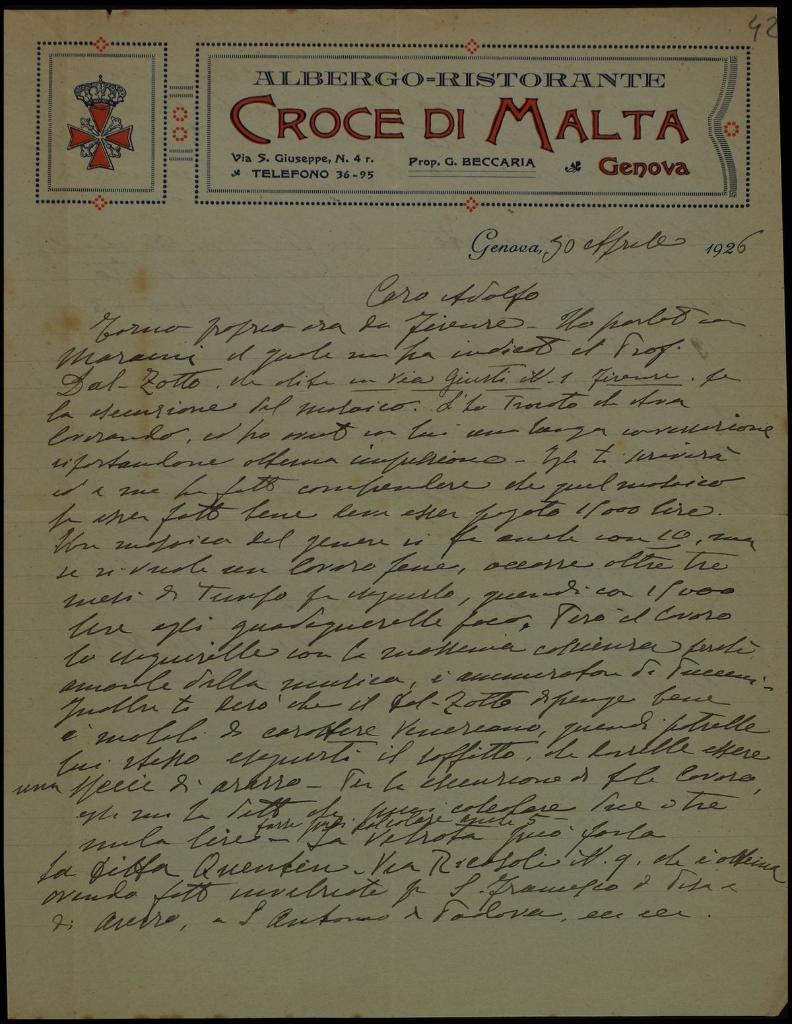 42
ALBERGO-RISTORANTE
CROCE DI MALTA
Via S. Giuseppe, N. 4 r. Prop. G. BECCARIA Genova
TELEFONO 36-95
Genova, 30 Aprile 1926
Caro Adolfo
Torno proprio ora da Firenze - Ho parlato con
Maraini il quale mi ha indicato il Prof.
Dal-Zotto, che abita in Via Giusti N. 1 Firenze, per
la esecuzione del mosaico. L'ho trovato che stava
lavorando, ed ho avuto con lui una lunga conversazione
riportandone ottima impressione - Egli ti scriverà
ed a me ha fatto comprendere che quel mosaico
per esser fatto bene deve esser pagato 15000 lire.
Un mosaico del genere si fa anche con 10, ma
se si vuole un lavoro fine, occorre oltre tre
mesi di tempo per eseguirlo, quindi con 15000
lire egli guadagnerebbe poco. Però il lavoro
lo eseguirebbe con la massima coscienza perché
amante della musica, e ammiratore di Puccini -
Inoltre ti dirò che il Dal-Zotto dipinge bene
e mobili di carattere Veneziano, quindi potrebbe
lui stesso eseguirti il soffitto, che dovrebbe essere
una specie di arazzo - Per la esecuzione di tale lavoro,
egli mi ha detto che puoi calcolare due o tre
mila lire - forse puoi calcolare anche 5 - La Vetrata può farla
la Ditta Quentin - Via Ricasoli N. 9, che è ottima
avendo fatto invetriate per S. Francesco di Pisa e
di Arezzo, a S. Antonio di Padova, ecc ecc.